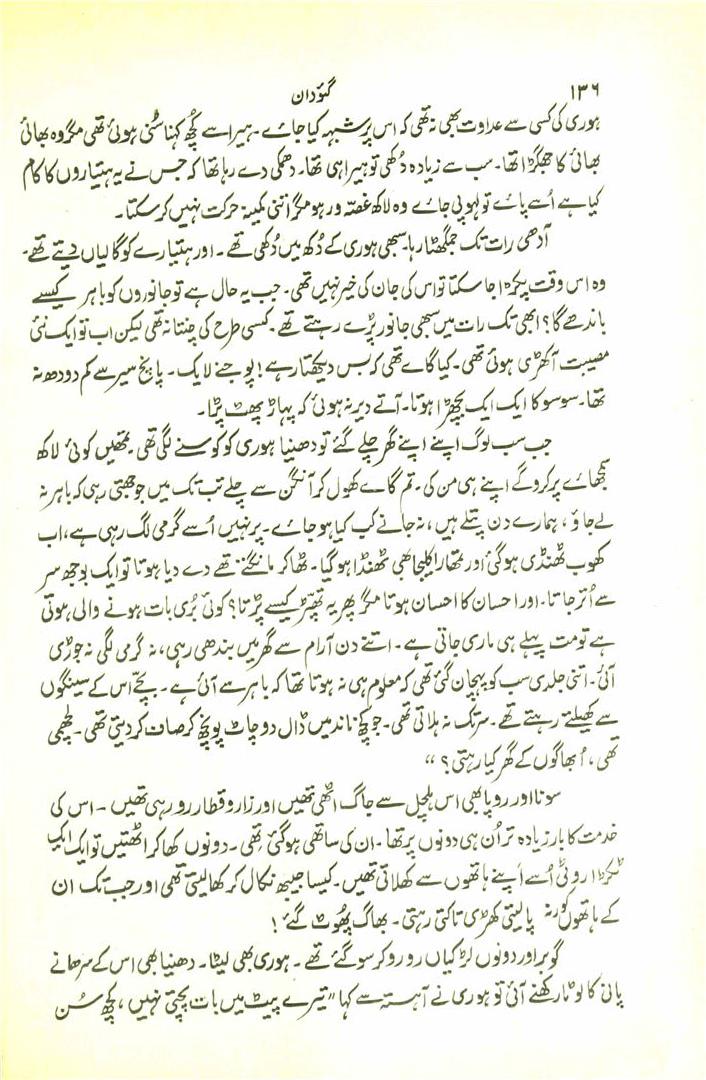 ۱۳۶
گئودان
ہوری کی کسی سے عداوت بھی نہ تھی کہ اس پر شبہہ کیا جائے۔ ہیرا سے کچھ کہنا سُنی ہوئی تھی مگر وہ بھائی
بھائی کا جھگڑا تھا۔ سب سے زیادہ دُکھی تو ہیرا ہی تھا۔ دھمکی دے رہا تھا کہ جس نے یہ ہتیاروں کا کام
کیا ہے اُسے پائے تو لہو پی جائے وہ لاکھ غصّہ ور ہو مگر اتنی کمینہ حرکت نہیں کر سکتا۔
آدھی رات تک جمگھٹا رہا۔ سبھی ہوری کے دُکھ میں دُکھی تھے۔ اور ہتیارے کو گالیاں دیتے تھے۔
وہ اس وقت پکڑا جا سکتا تو اس کی جان کی خیر نہیں تھی۔ جب یہ حال ہے تو جانوروں کو باہر کیسے
باندھے گا؟ ابھی تک رات میں سبھی جانور پڑے رہتے تھے۔ کسی طرح کی چنتا نہ تھی لیکن اب تو ایک نئی
مصیبت آکھڑی ہوئی تھی۔ کیا گائے تھی کہ بس دیکھتا رہے! پوجنے لایک۔ پانچ سیر سے کم دودھ نہ
تھا۔ سو سو کا ایک ایک بچھڑا ہوتا۔ آتے دیر نہ ہوئی کہ پہاڑ پھٹ پڑا۔
جب سب لوگ اپنے اپنے گھر چلے گئے تو دھنیا ہوری کو کوسنے لگی تھی۔ تمھیں کوئی لاکھ
سمجھائے پر کرو گے اپنے ہی من کی۔ تم گائے کھول کر آنگن سے چلے تب تک میں جوجھتی رہی کہ باہر نہ
لے جاؤ، ہمارے دن پتلے ہیں، نہ جانے کب کیا ہو جائے۔ پر نہیں اُسے گرمی لگ رہی ہے، اب
کھوب ٹھنڈی ہو گئی اور تمھارا کلیجا بھی ٹھنڈا ہو گیا۔ ٹھاکر مانگتے تھے دے دیا ہوتا تو ایک بوجھ سر
سے اُتر جاتا۔ اور احسان کا احسان ہوتا مگر پھر یہ تھپّڑ کیسے پڑتا؟ کوئی بُری بات ہونے والی ہوتی
ہے تو مت پہلے ہی ماری جاتی ہے۔ اتنے دن آرام سے گھر میں بندھی رہی، نہ گرمی لگی نہ جوڑی
آئی۔ اتنی جلدی سب کو پہچان گئی تھی کہ معلوم ہی نہ ہوتا تھا کہ باہر سے آئی ہے۔ بچّے اس کے سینگوں
سے کھیلتے رہتے تھے۔ سر تک نہ ہلاتی تھی۔ جو کچھ ناند میں ڈال دو چاٹ پونچھ کر صاف کر دیتی تھی۔ لچھمی
تھی، اُبھاگوں کے گھر کیا رہتی؟“
سونا اور روپا بھی اس ہلچل سے جاگ اٹھی تھیں اور زار و قطار رو رہی تھیں۔ اس کی
خدمت کا بار زیادہ تر اُن ہی دونوں پر تھا۔ ان کی ساتھی ہو گئی تھی۔ دونوں کھا کر اٹھتیں تو ایک ایک
ٹکڑا روٹی اُسے اپنے ہاتھوں سے کھلاتی تھیں۔ کیسا جیبھ نکال کر کھا لیتی تھی اور جب تک ان
کے ہاتھوں کور نہ پا لیتی کھڑی تاکتی رہتی۔ بھاگ پھُوٹ گئے!
گوبر اور دونوں لڑکیاں رو رو کر سو گئے تھے۔ ہوری بھی لیٹا۔ دھنیا بھی اس کے سرھانے
پانی کا لوٹا رکھنے آئی تو ہوری نے آہستہ سے کہا ”تیرے پیٹ میں بات پچتی نہیں، کچھ سُن